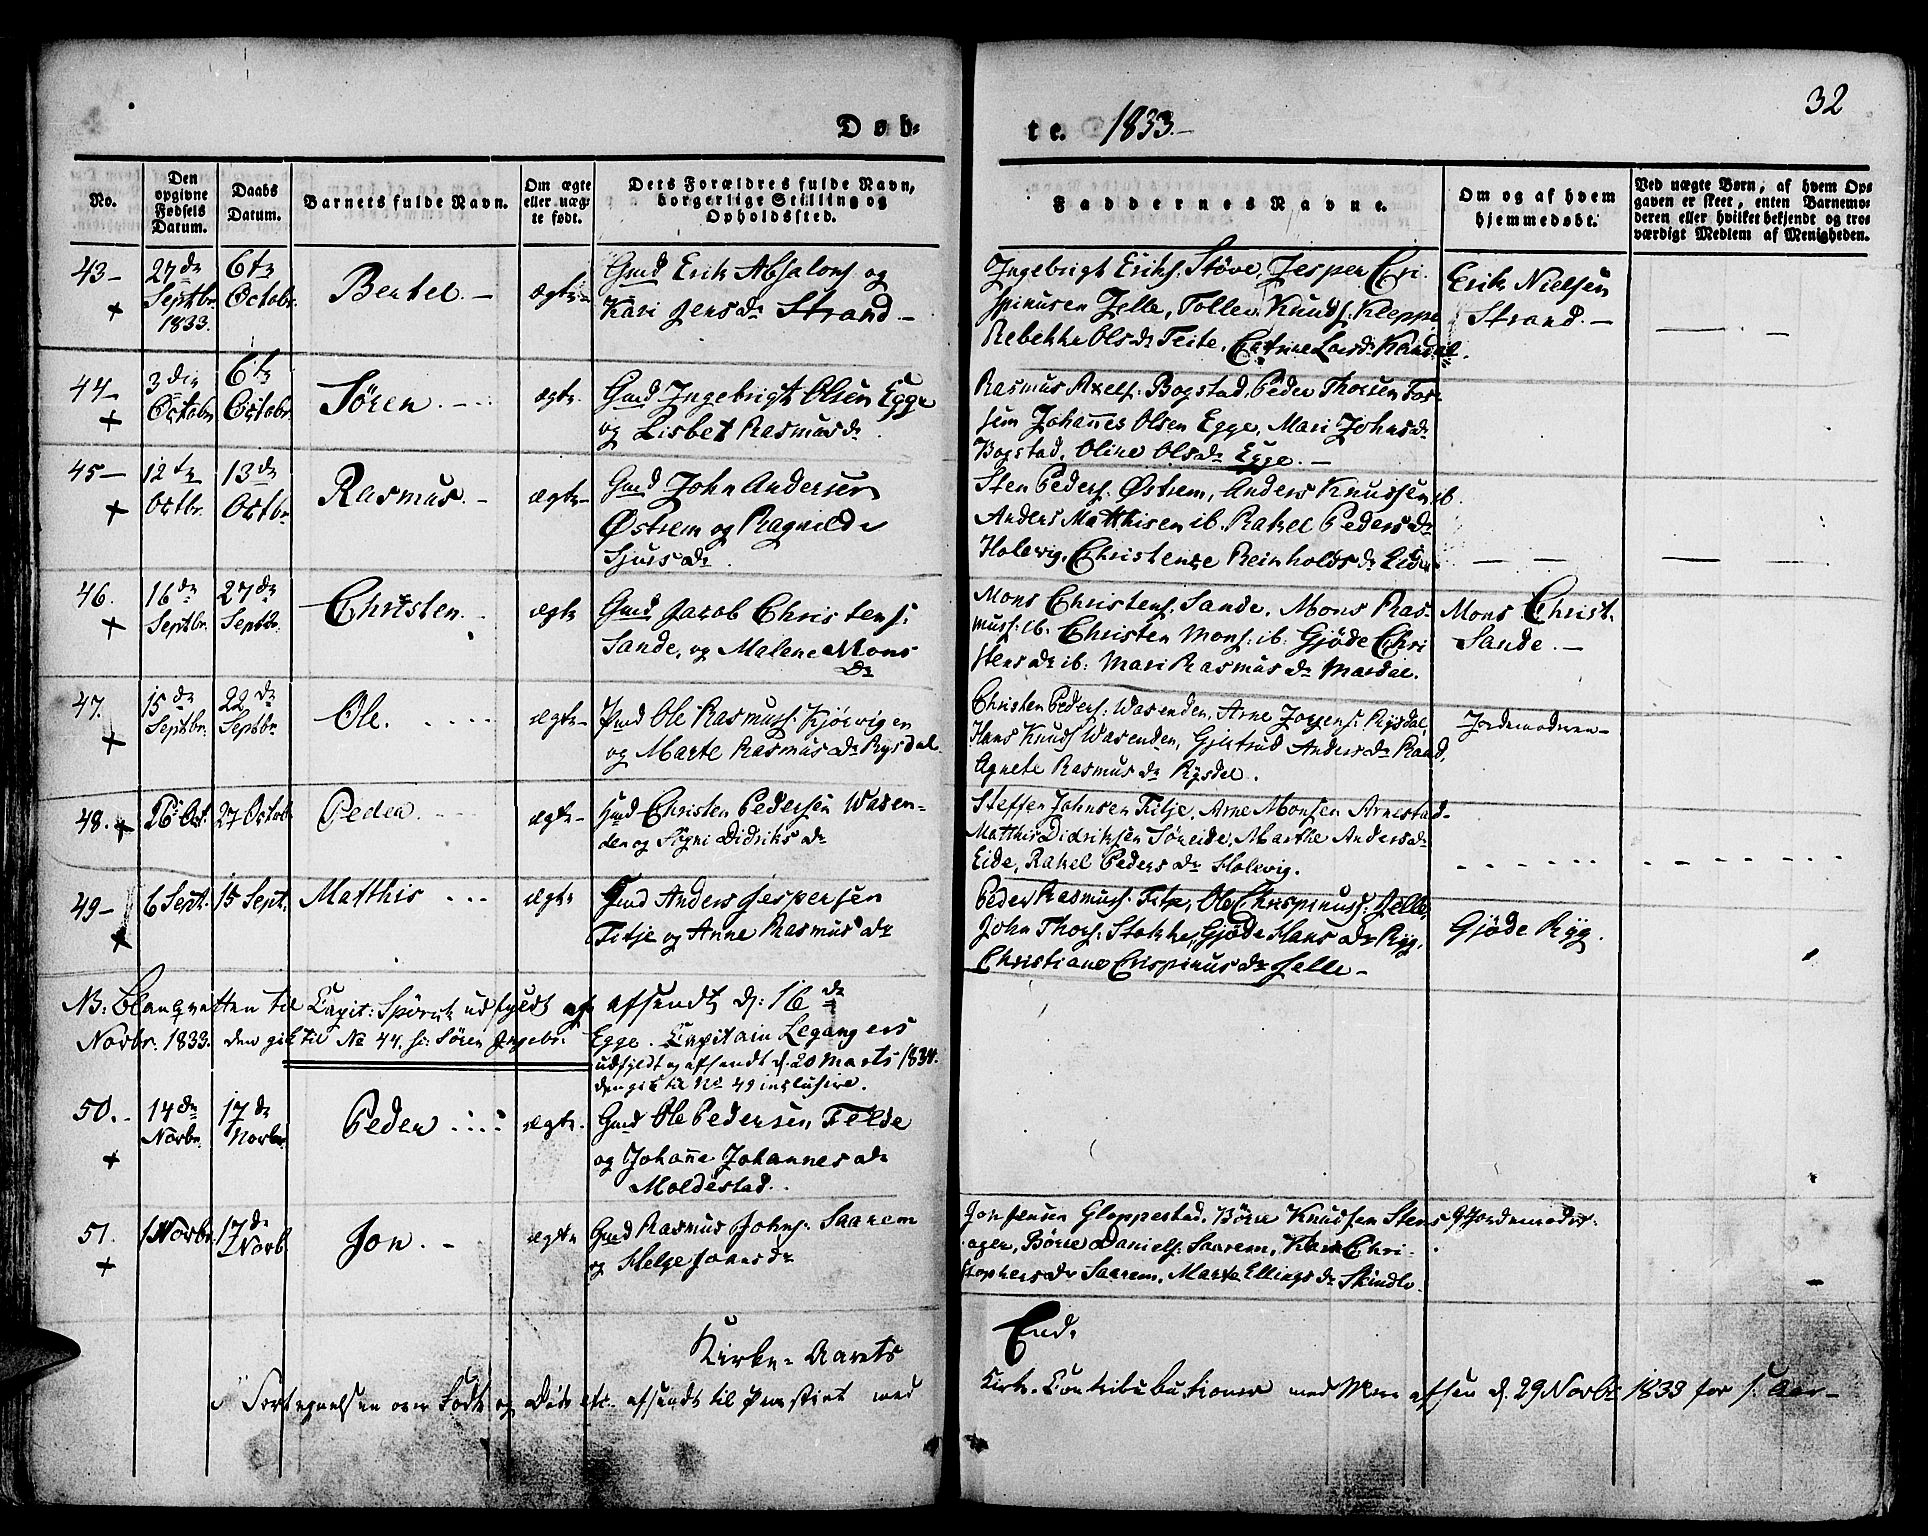 32
Døb-
te. 1833.-
No.
Den opgivne Fødsels Datum.
Daabs Datum.
Barnets fulde Navn.
Om ægte eller uægte født.
Dets Forældres fulde Navn, borgerlige Stilling og Opholdsted.
Faddernes Navne.
Om og af hvem hjemmedøbt.
Ved uægte Børn, af hvem Opgaven er skeet, enten Barnemoderen eller hvilket bekjendt og troværdigt Medlem af Menigheden.
43- 27de 6te Bertel. - ægte- Gmd Erik Absalons og
+ Septbr. Octobr. Kari Jensdr Strand -
1833.
Ingebrigt Eriks: Støve, Jesper Cri-
spinusen Jelle, Tollev Knuds: Kleppe
Rebekka Olsdr Teite, Larsdr
Erik Nielsen
Strand. -
44- 3die 6te Sören. - ægte. Gmd Ingebrigt Olsen Egge
+ Octobr Octobr. og Lisbet Rasmusdr.
Rasmus Axels: Bogstad, Peder Thorsen For-
sem Johannes Olsen Egge, Mari Johnsdr
Bogstad, Oline Olsdr Egge. -
45- 12te 13de Rasmus. - ægte- Gmd John Andersen
+ Octbr. Octbr. Østrem og Ragnilde
Sjursdr.
Sten Peders: Østrem, Anders Knudsen ib.
Anders Matthisen ib. Rakel Pedersdr
Holevig, Christense Reinholdsdr Eide
46. 16de 27de Christen ægte Gmd Jacob Christens:
+ Septbr. Septbr. Sande, og Malene Mons
dr
Mons Christens: Sande, Mons Ras-
muss: ib. Christen Mons: ib: Gjøde Chri
stensdr ib: Mari Rasmusdr Mardal.
Mons Christ.
Sande. -
47. 15de 22de Ole. ægte- Gmd Ole Rasmuss: Kjörvigen
+ Septbr. Septbr. og Marte Rasmusdr Rysdal.
Christen Peders: Wasenden, Arne Jorgens: Rysdal,
Hans Knuds Wasenden, Gjertrud Andersdr Raad,
Agnete Rasmusdr Rysdal.
Jordemoderen-
48. + 26 Oct. 27 Octob. Peder ægte- Gmd Christen Pedersen Wasen-
den og Signi Didriksdr
Steffen Johnsen Fitje, Arne Monsen Arnestad-
Matthis Didriksen Søreide, Marthe Andersdr
Eide, Rakel Pedersdr Holevig.
49- 6 Sept. 15 Sept. Matthis ægte Gmd Anders Jespersen
+ Fitje og Anne Rasmusdr
Peder Rasmuss: Fitje, Ole Chrispinuss: Jelle,
John Thors: Stokke, Gjøde Hansdr Ryg,
Christiane Crispinusdr Jelle -
Gjøde Ryg.
NB: Blanqvetten til Capit: Spörck udfyldt og afsendt d: 16de
Novbr. 1833. den gik til No 44. s: Sören Ingebr: Egge. Capitain Legangers
udfyldt og afsendt d. 20 Marts 1834.
den gik til No 49 inclusive.
50. - 14de 17de Peder ægte. Gmd Ole Pedersen Felde
+ Novbr. Novbr. og Johanne Johannesdr
Moldestad.
51. 1 Novbr. 17de Jon. - ægte Gmd Rasmus Johns: Saarem
+ Novb. og Helge Jonsdr
Jon Jensen Gloppestad, Börre Knudsen Stens-
ager, Börre Daniels: Saarem, Chri-
stophersdr Saarem, Marte Ellingsdr
Jordemoder:
Kirke-Aarets
End.
Fortegnelsen over Födte og Döde etc. afsendt til Provstiet med
Kirke-Contributionen med d. 29 Novbr 1833 for Aar-